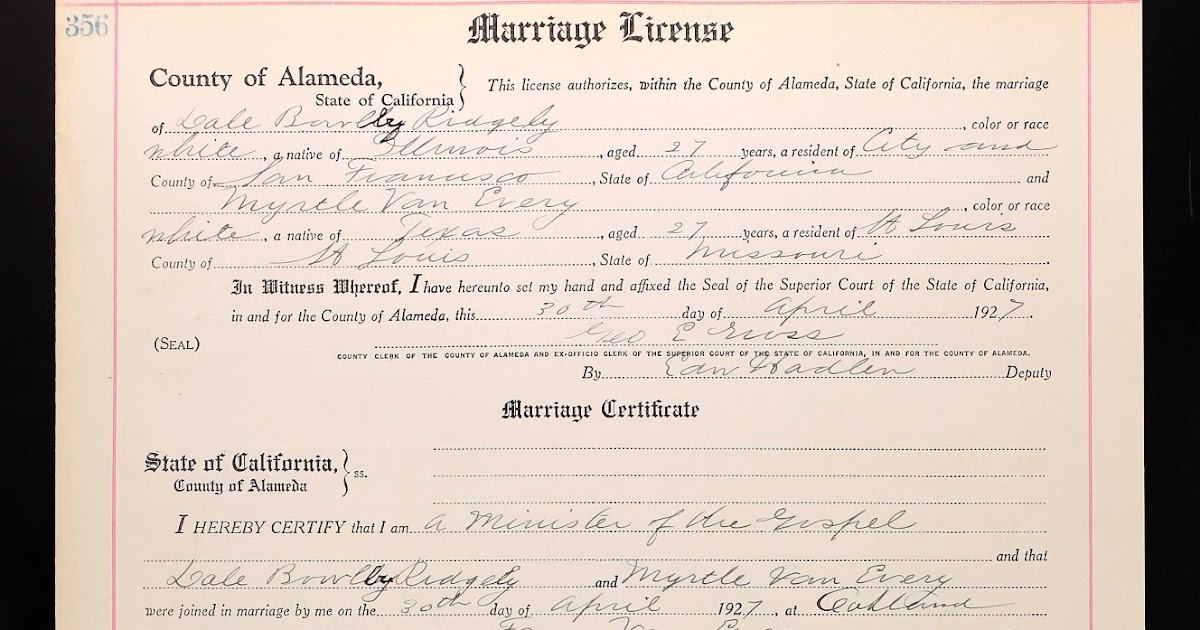 356
Marriage License
County of Alameda,
State of California } This license authorizes, within the County of Alameda, State of California, the marriage
of Dale Bowlby Ridgely, color or race
white, a native of Illinois, aged 27 years, a resident of City and
County of San Francisco, State of California and
Myrtle Van Every, color or race
white, a native of Texas, aged 27 years, a resident of St Louis
County of St Louis, State of Missouri.
In Witness Whereof, I have hereunto set my hand and affixed the Seal of the Superior Court of the State of California,
in and for the County of Alameda, this 30th day of April 1927.
(SEAL) Geo E Gross
COUNTY CLERK OF THE COUNTY OF ALAMEDA AND EX-OFFICIO CLERK OF THE SUPERIOR COURT OF THE STATE OF CALIFORNIA, IN AND FOR THE COUNTY OF ALAMEDA.
By Deputy
Marriage Certificate
State of California,
County of Alameda } ss.
I HEREBY CERTIFY that I am a Minister of the Gospel
and that
Dale Bowlby Ridgely and Myrtle Van Every
were joined in marriage by me on the 30th day of April 1927, at Oakland